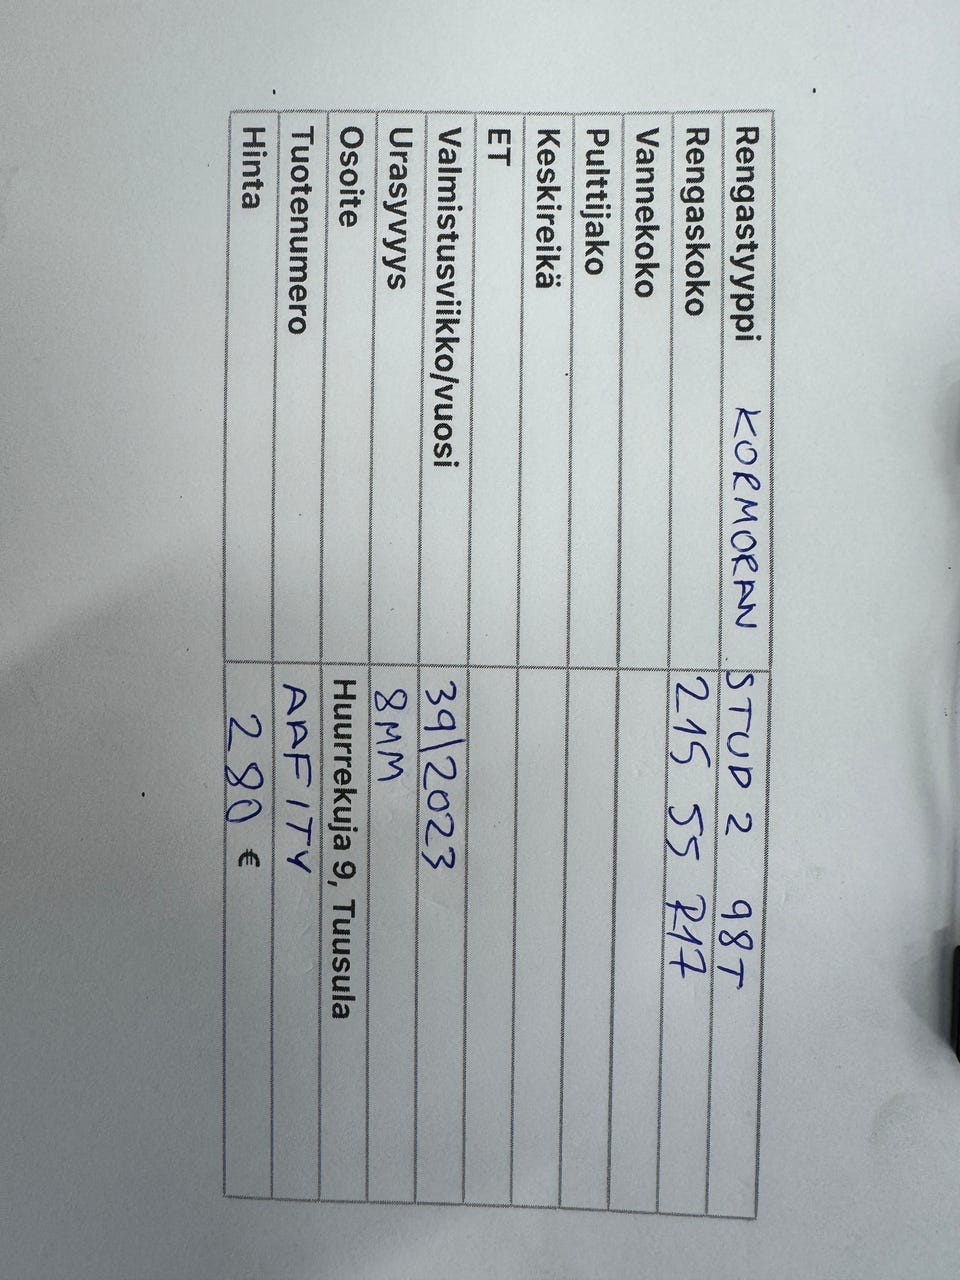 Rengastyyppi KORMORAN STUD 2 98T
Rengaskoko 215 55 R17
Vannekoko
Pulttijako
Keskireikä
ET
Valmistusviikko/vuosi 39\2023
Urasyvyys 8MM
Osoite Huurrekuja 9, Tuusula
Tuotenumero AAFITY
Hinta 280 €